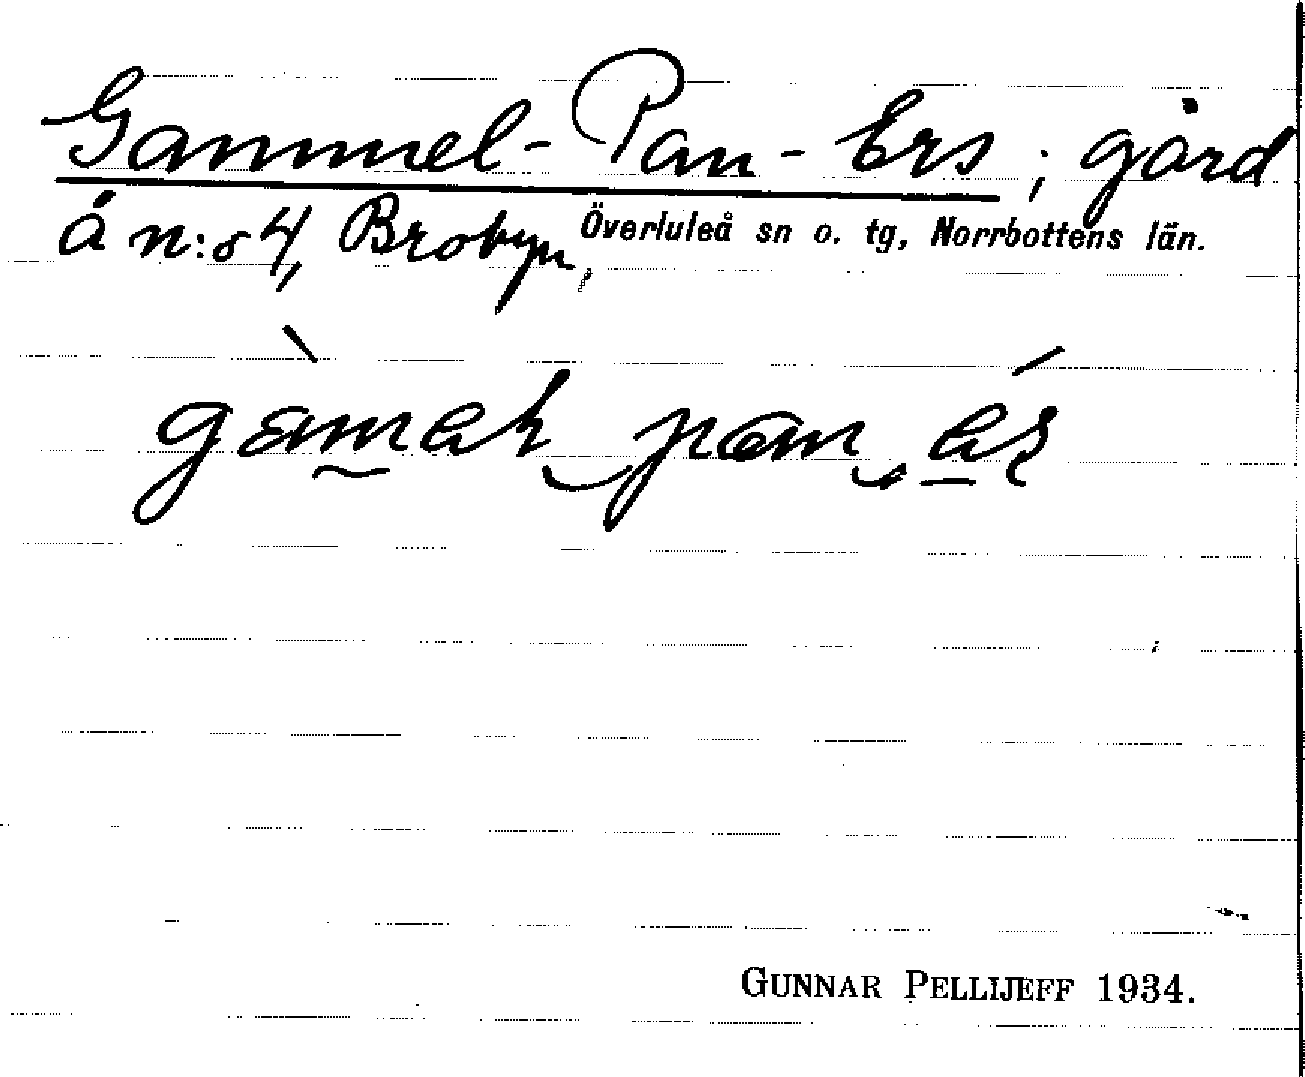 Gammel-Pan-Ers; gård
å n:o 4, Brobyn, Överluleå sn o. tg, Norrbottens län.
GUNNAR PELLIJEFF 1934.